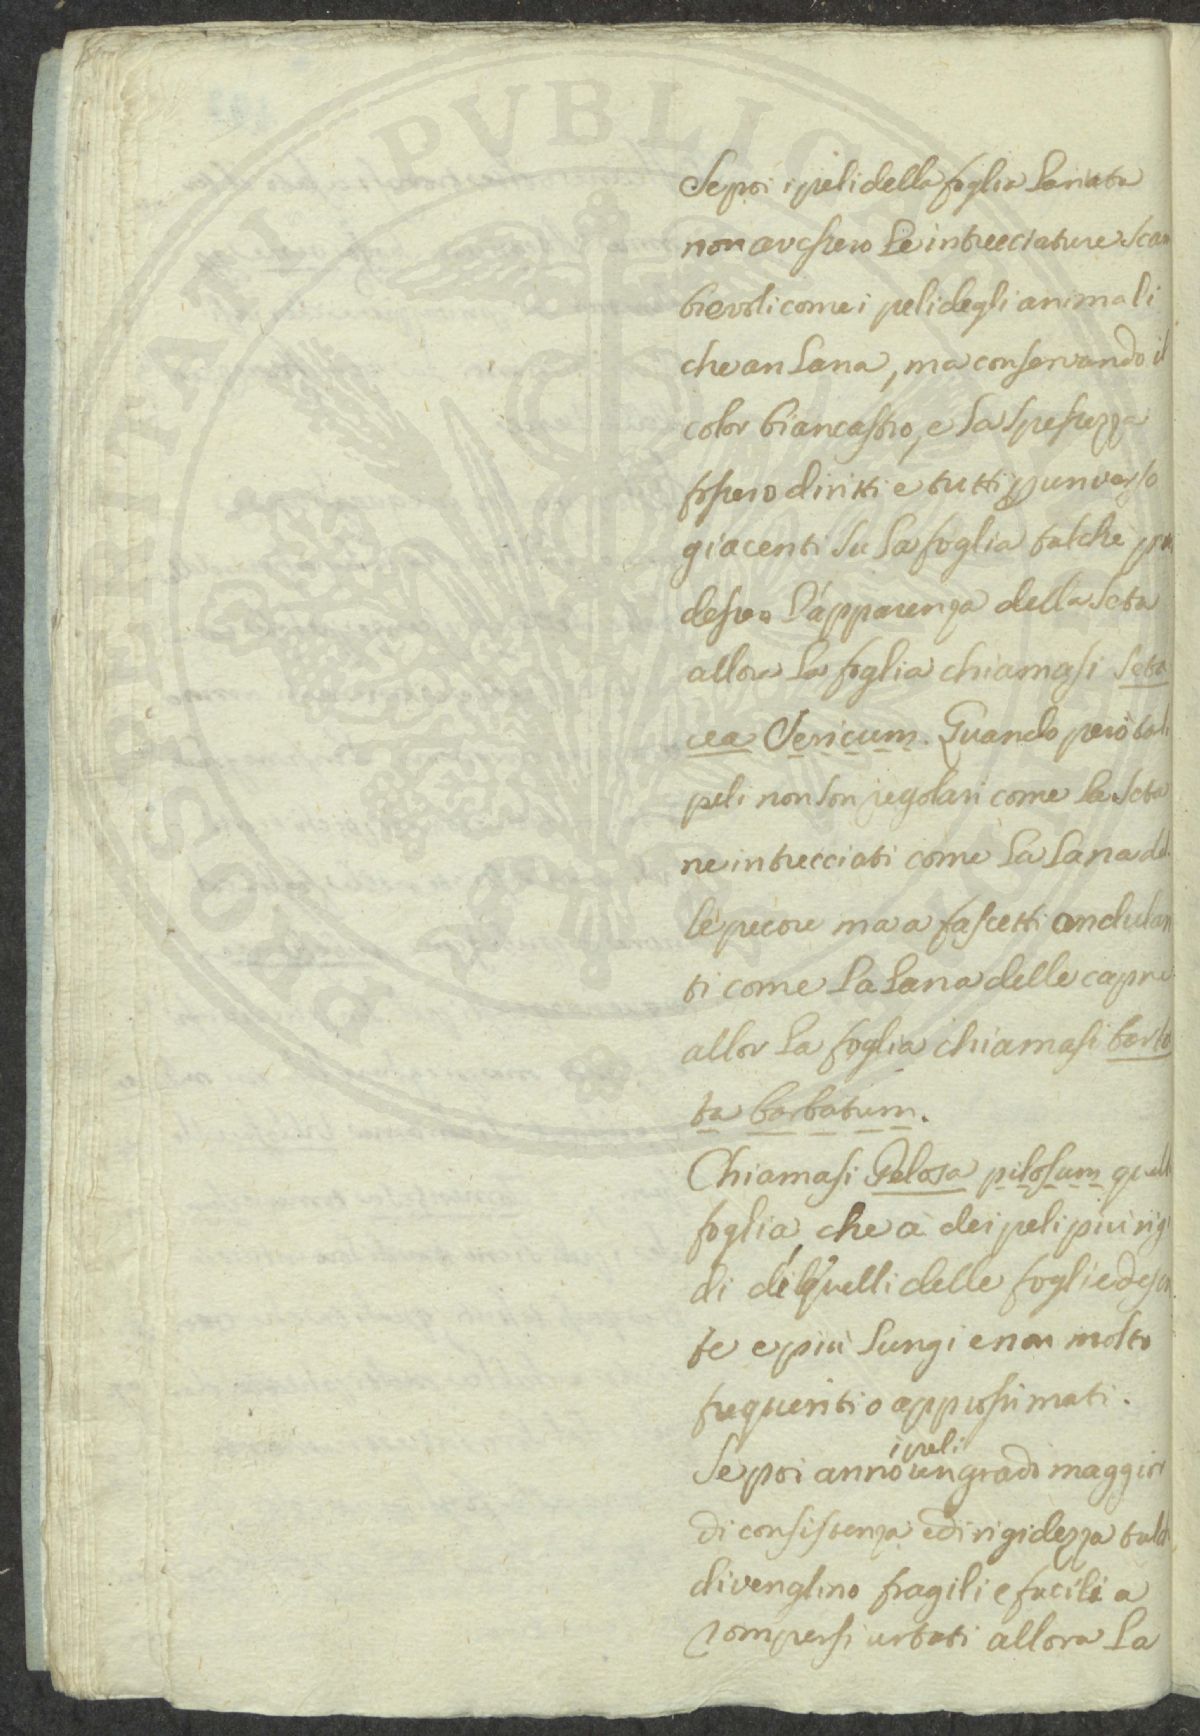 Se poi i peli della foglia Lanata
non avessero le intrecciature scam
bievoli come i peli degli animali
che an Lana, ma conservando il
color biancastro, e la spessezza
fossero diritti e tutti p un verso
giacenti su la foglia talche pren
dessero l'apparenza della seta
allora la foglia chiamasi Seta
cea Sericum. Quando però tali
peli non son regolari come la seta
ne intrecciati come la lana del
le pecore ma a fascetti ondulan
ti come la Lana delle capre
allor la foglia chiamasi barba
ta barbatum.
Chiamasi Pelosa pilosum quella
foglia che à dei peli più rigi
di di quelli delle foglie
te e più lungi e non molto
frequenti o approssimati.
i peli
Se poi anno un grado maggior
di consistenza e di rigidezza talch
divenghino fragili e facili a
rompersi urtati allora la